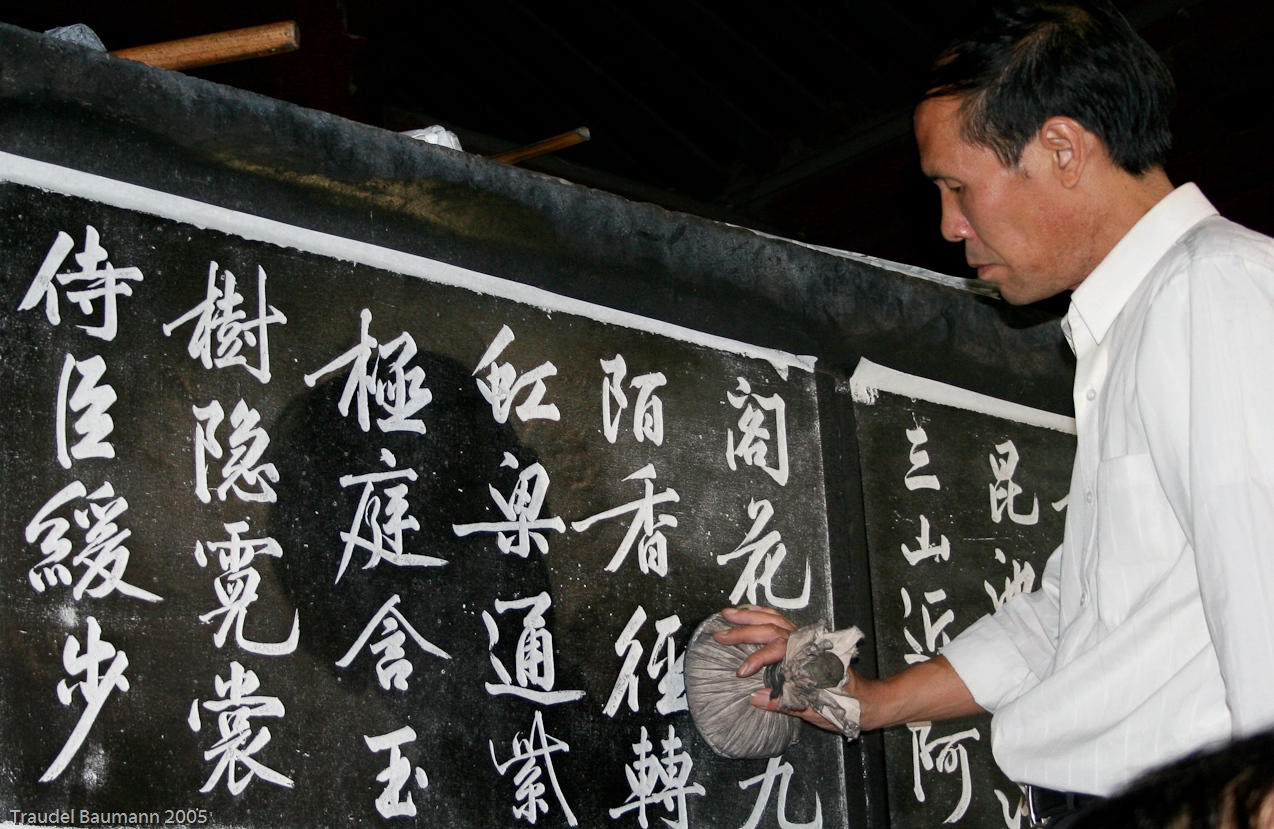 昆池
三山近阿
阁花九
陌香徑轉
虹梁通紫
極庭含玉
樹隐霓裳
侍臣緩步
Traudel Baumann 2005